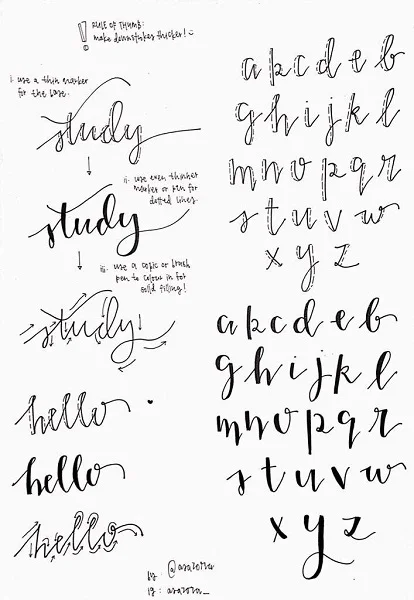 ! RULE OF THUMB:
make downstrokes thicker!
i. use a thin marker
for the base.
study
ii. use even thinner
marker or pen for
dotted lines.
study
iii. use a copic or brush
pen to colour in for
solid filling!
study
hello
hello
hello
a b c d e f
g h i j k l
m n o p q r
s t u v w
x y z
a b c d e f
g h i j k l
m n o p q r
s t u v w
x y z
by :
ig : asazora_